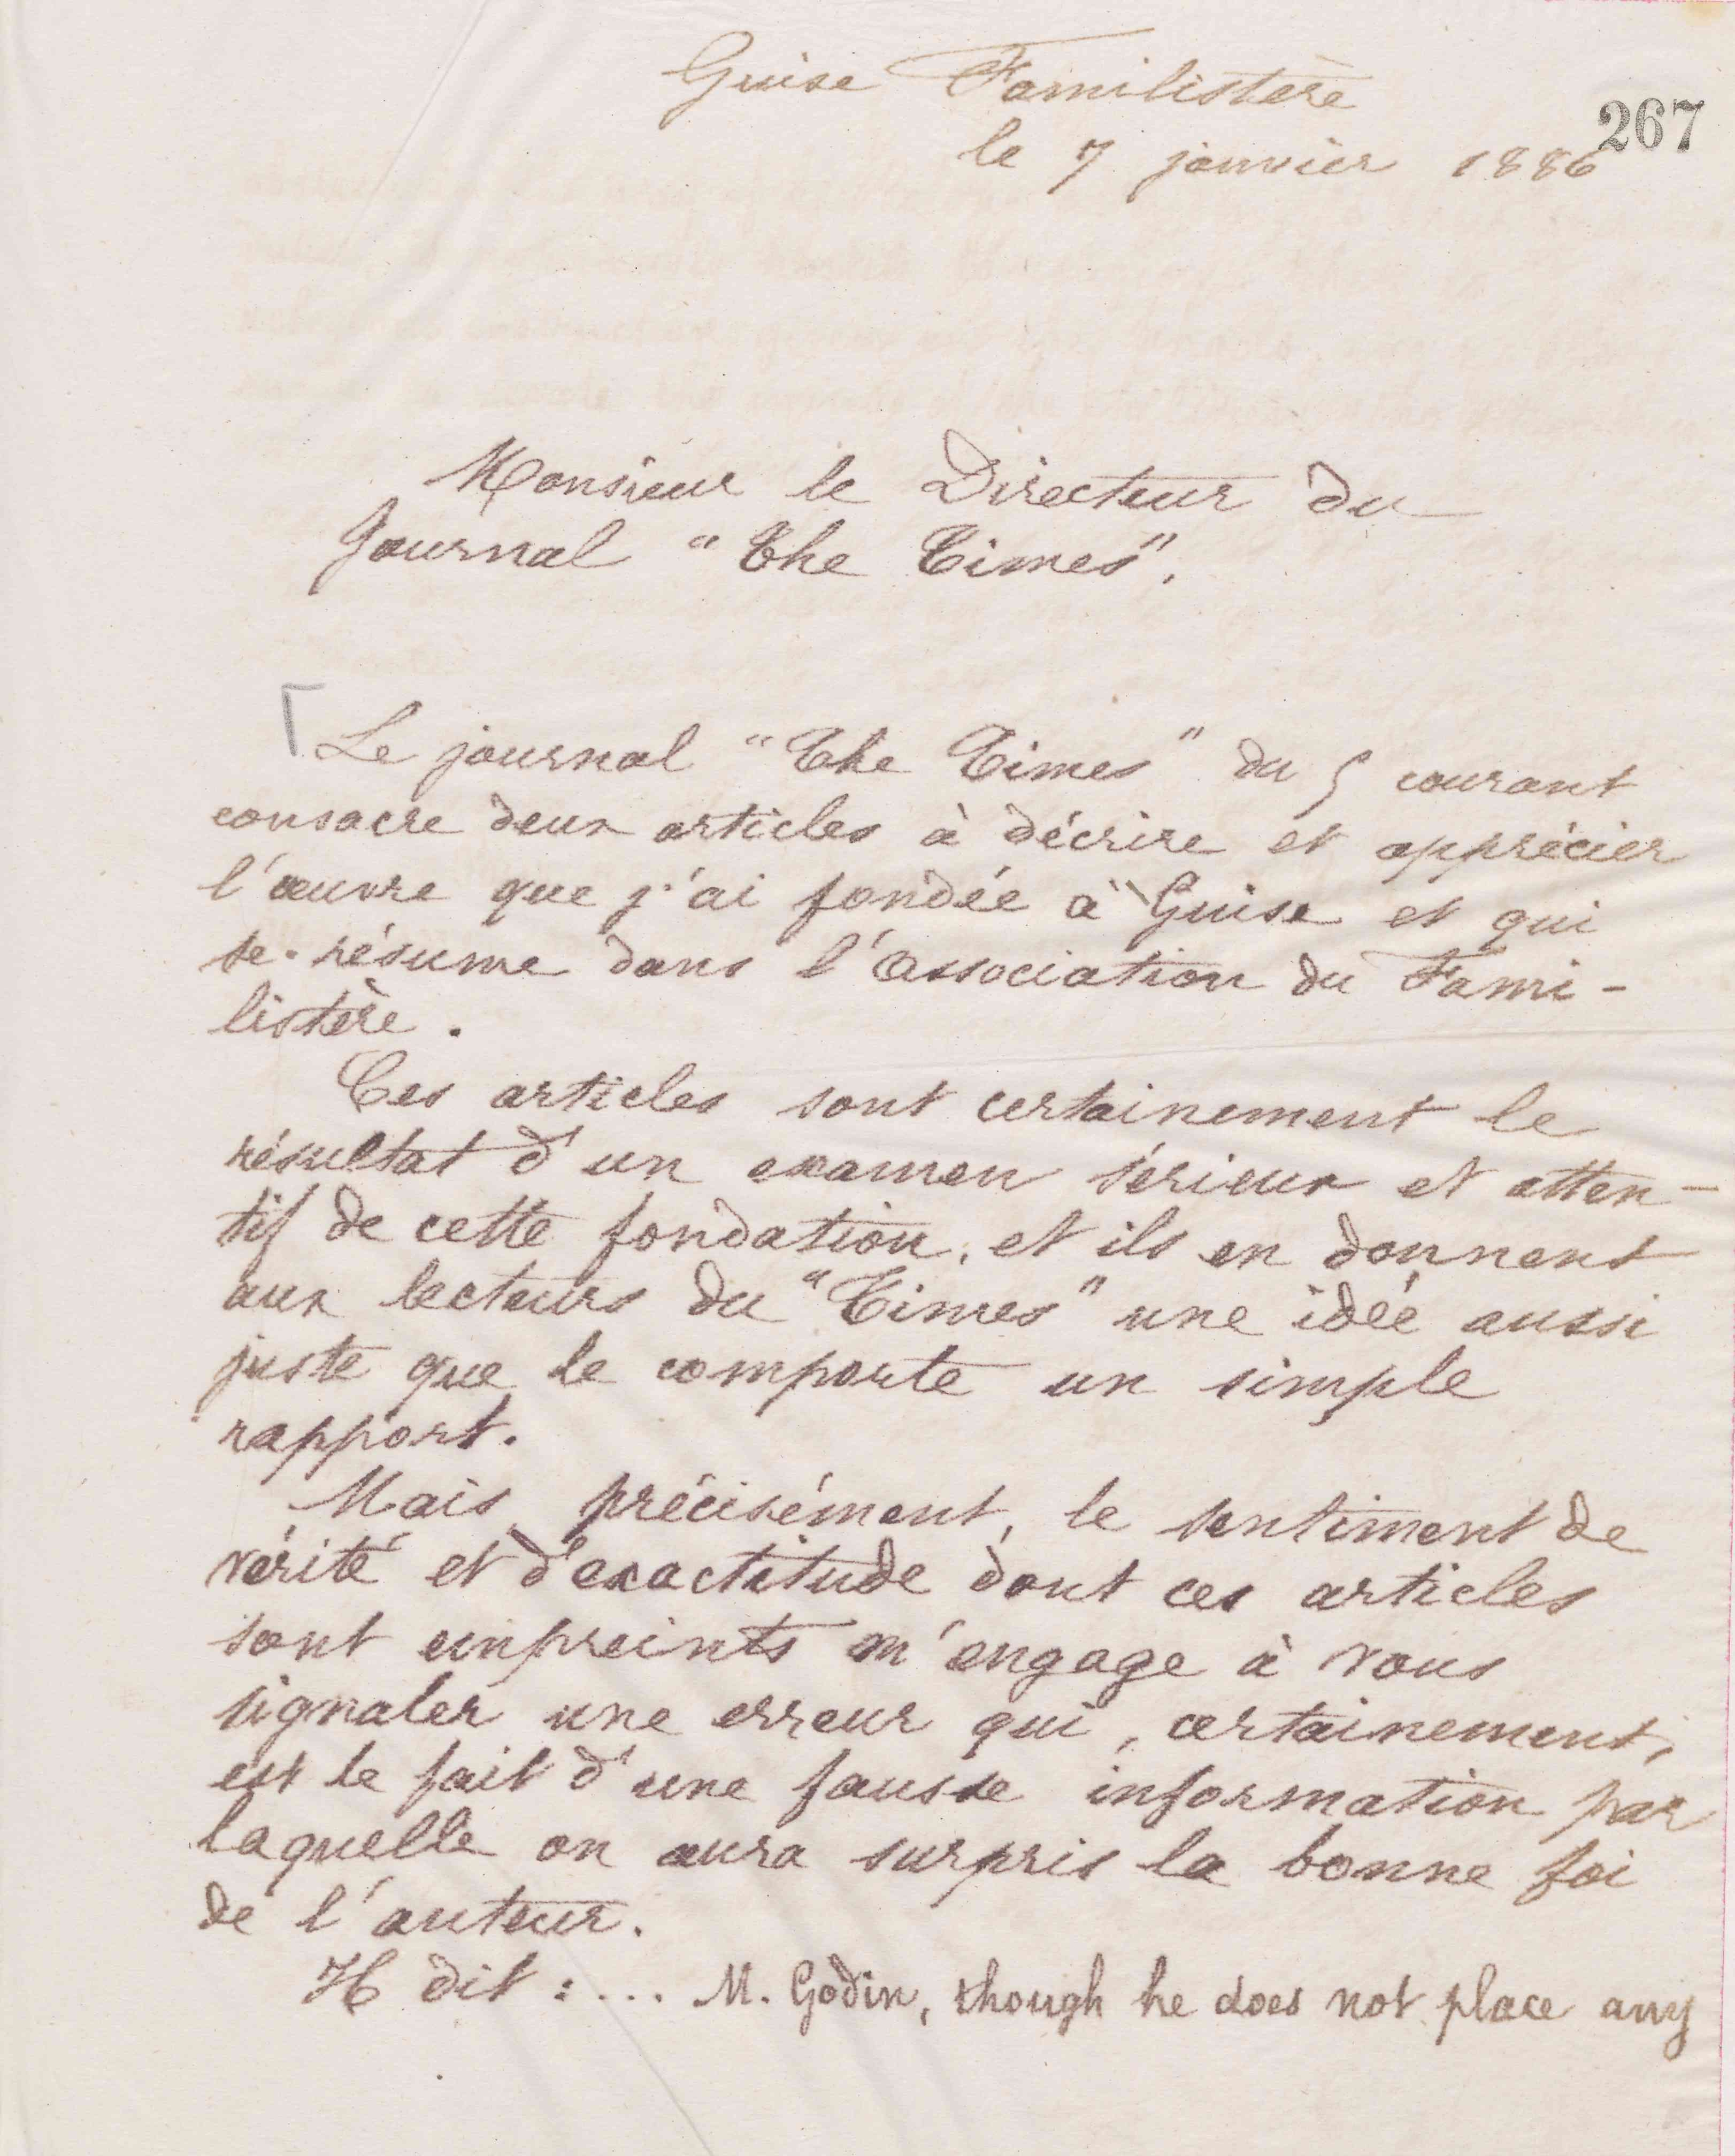 Guise Familistère
267
le 7 janvier 1886
Monsieur le Directeur du
Journal "The Times".
Le journal "The Times" du 5 courant
consacre deux articles à décrire et apprécier
l'œuvre que j'ai fondée à Guise et qui
se résume dans l'Association du Fami-
listère.
Ces articles sont certainement le
résultat d'un examen sérieux et atten-
tif de cette fondation, et ils en donnent
aux lecteurs du "Times" une idée aussi
juste que le comporte un simple
rapport.
Mais, précisément, le sentiment de
vérité et d'exactitude dont ces articles
sont empreints m'engage à vous
signaler une erreur qui, certainement,
est le fait d'une fausse information par
laquelle on aura surpris la bonne foi
de l'auteur.
Il dit : ... M. Godin, though he does not place any